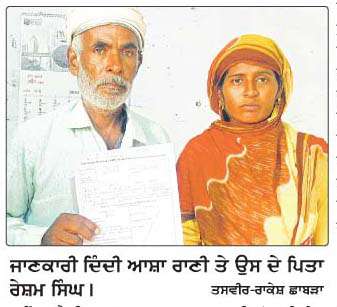 ਜਾਣਕਾਰੀ ਦਿੰਦੀ ਆਸ਼ਾ ਰਾਣੀ ਤੇ ਉਸ ਦੇ ਪਿਤਾ
ਰੇਸ਼ਮ ਸਿੰਘ। ਤਸਵੀਰ-ਰਾਕੇਸ਼ ਛਾਬੜਾ